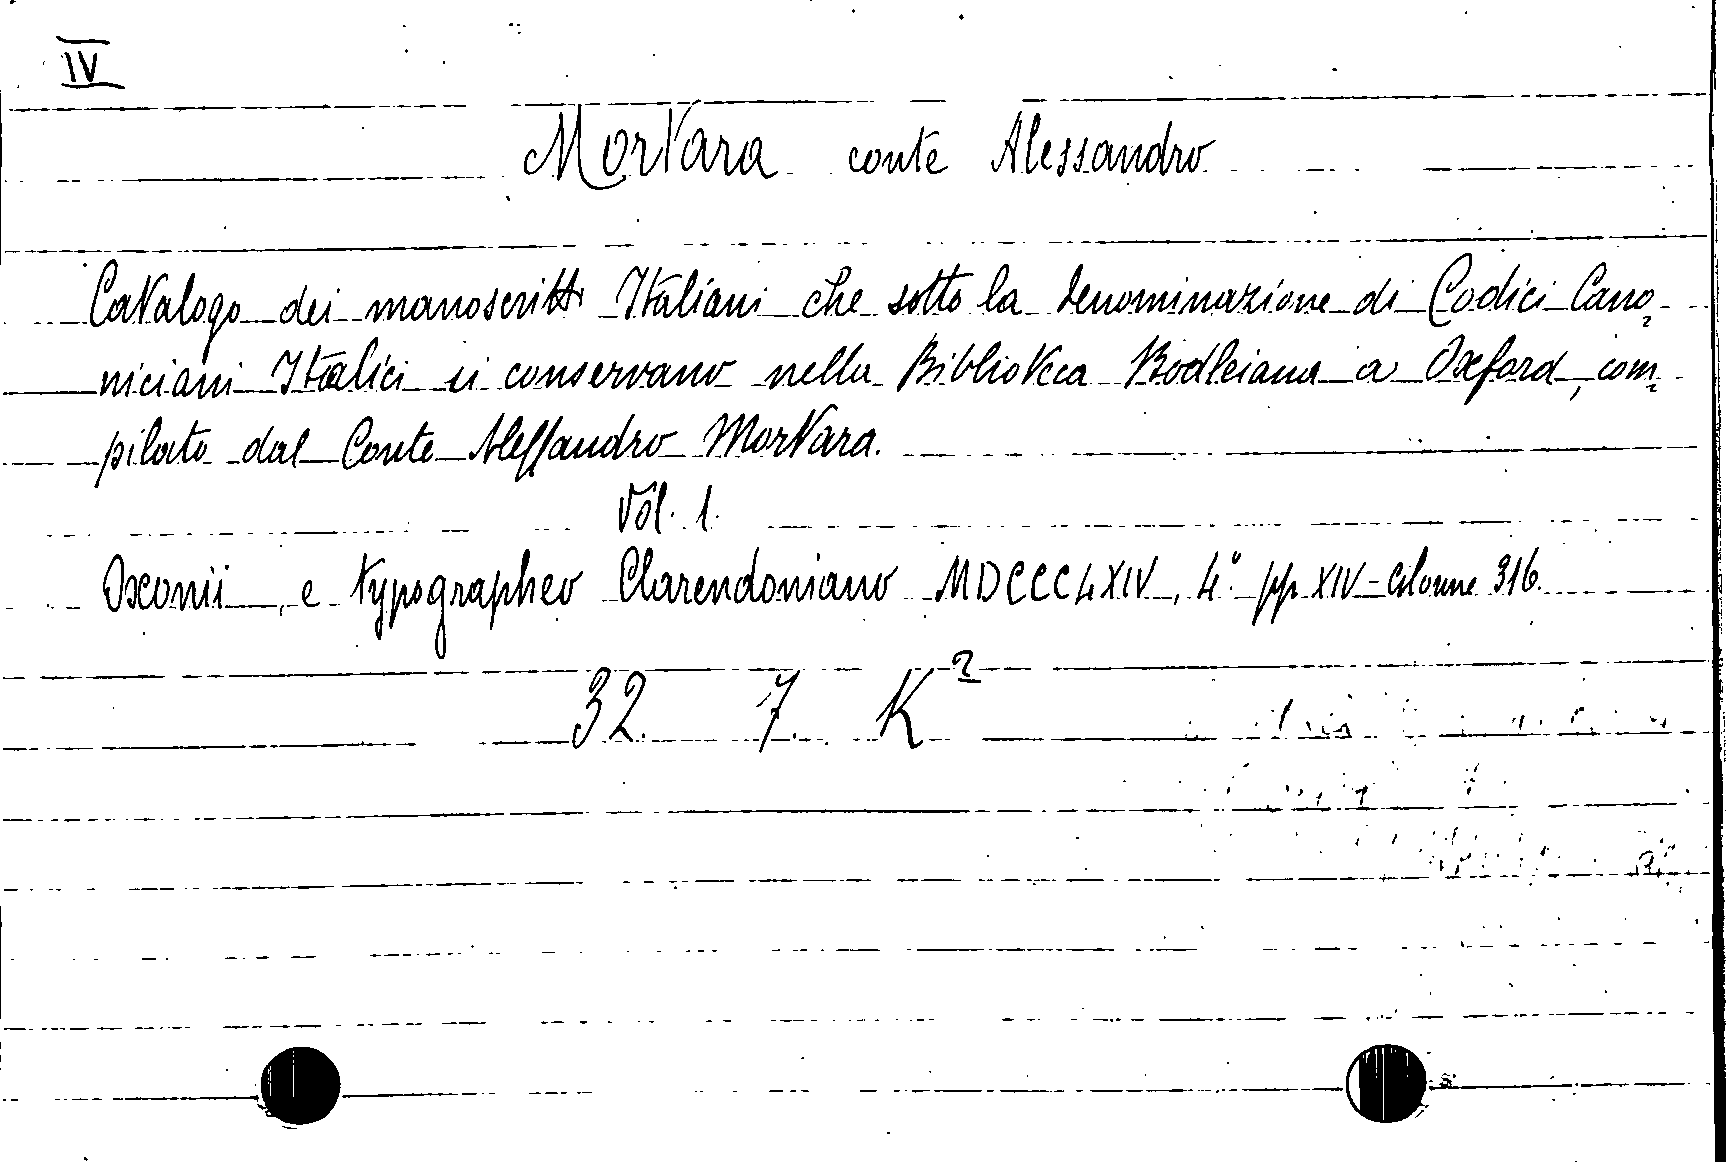 IV
Mortara conte Alessandro
Catalogo dei manoscritti Italiani che sotto la denominazione di Codici Cano=
niciani Italici si conservano nella Biblioteca Bodleiana a Oxford, com=
pilato dal Conte Alessandro Mortara.
Vol. 1.
Oxonii, e typographeo Clarendoniano MDCCCLXIV, 4° pp XIV - Colonne 316.
32. 7. K²